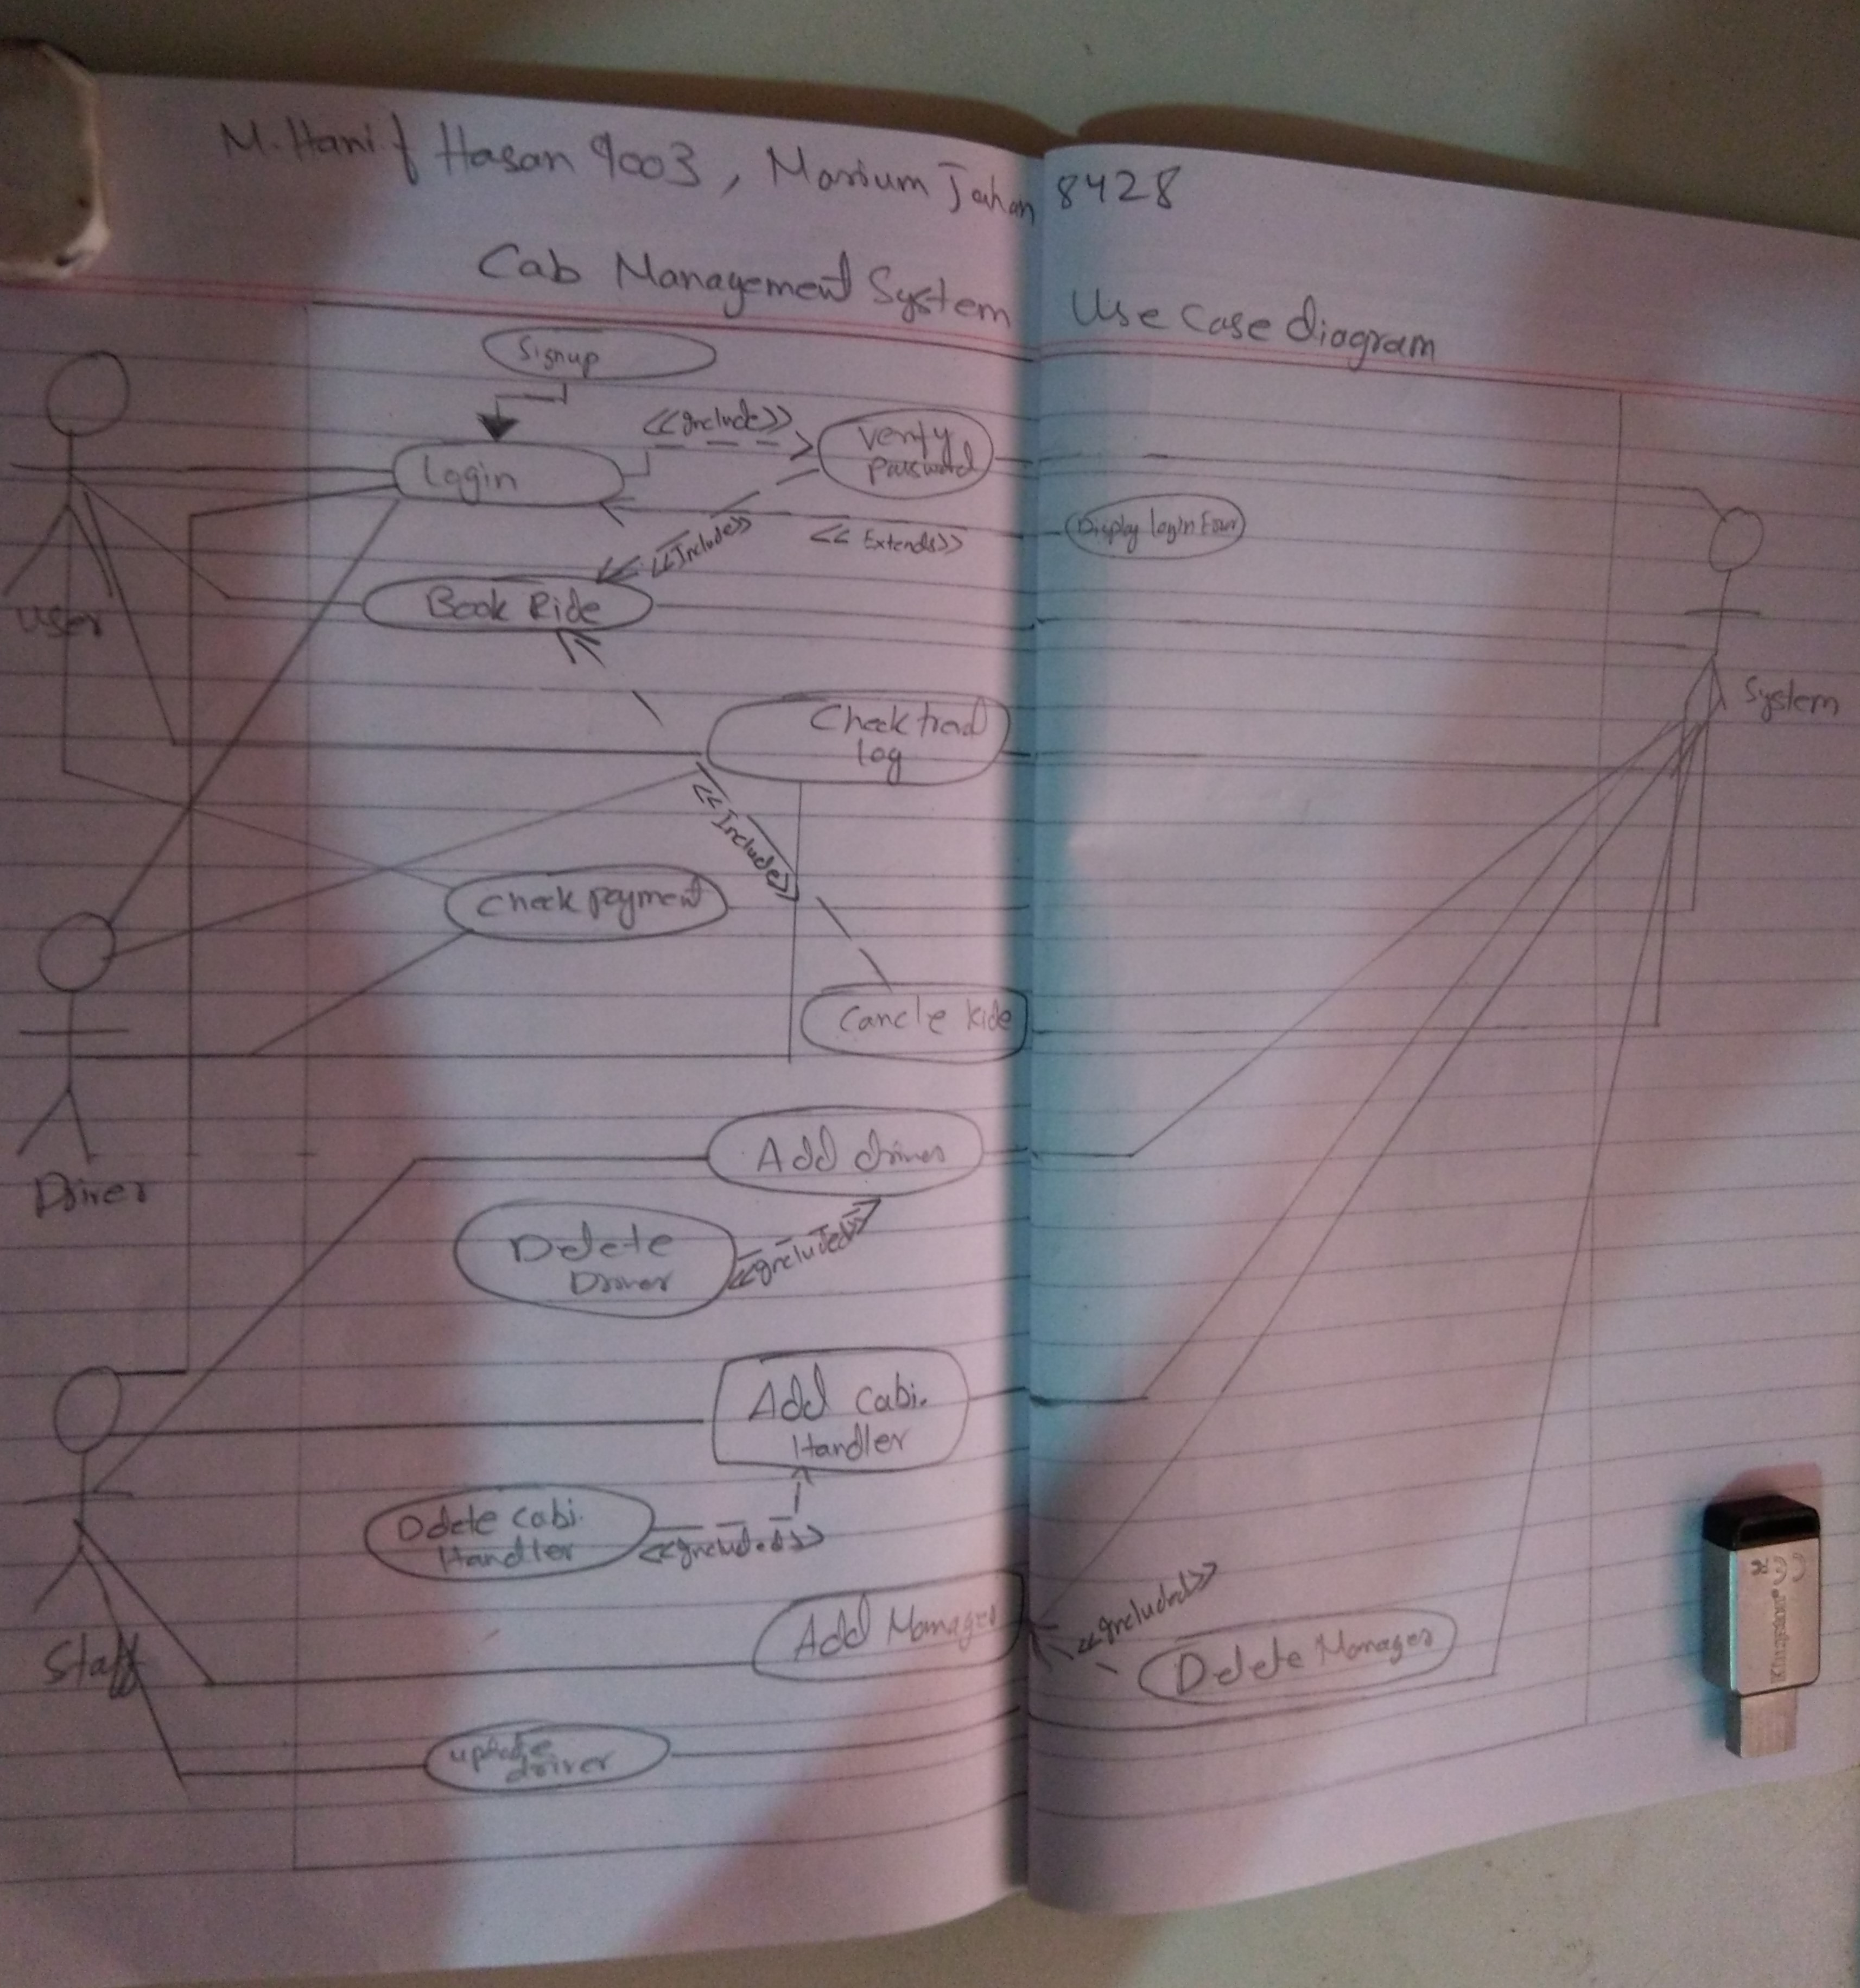 M. Hanif Hasan 9003, Marium Jahan 8428
Cab Management System Use Case diagram
Signup
<<Include>>
Verify
Password
Login
Display login Error
<<Include>>
<< Extends>>
Book Ride
User
System
Check travel
log
<<Include>>
Check payment
Cancle Ride
Add driver
Driver
Delete
Driver
<<Included>>
Add Cabi.
Handler
Delete cabi.
Handler
<<Included>>
<<Included>>
Add Manager
Delete Manager
Staff
update
driver
Kingston
CE